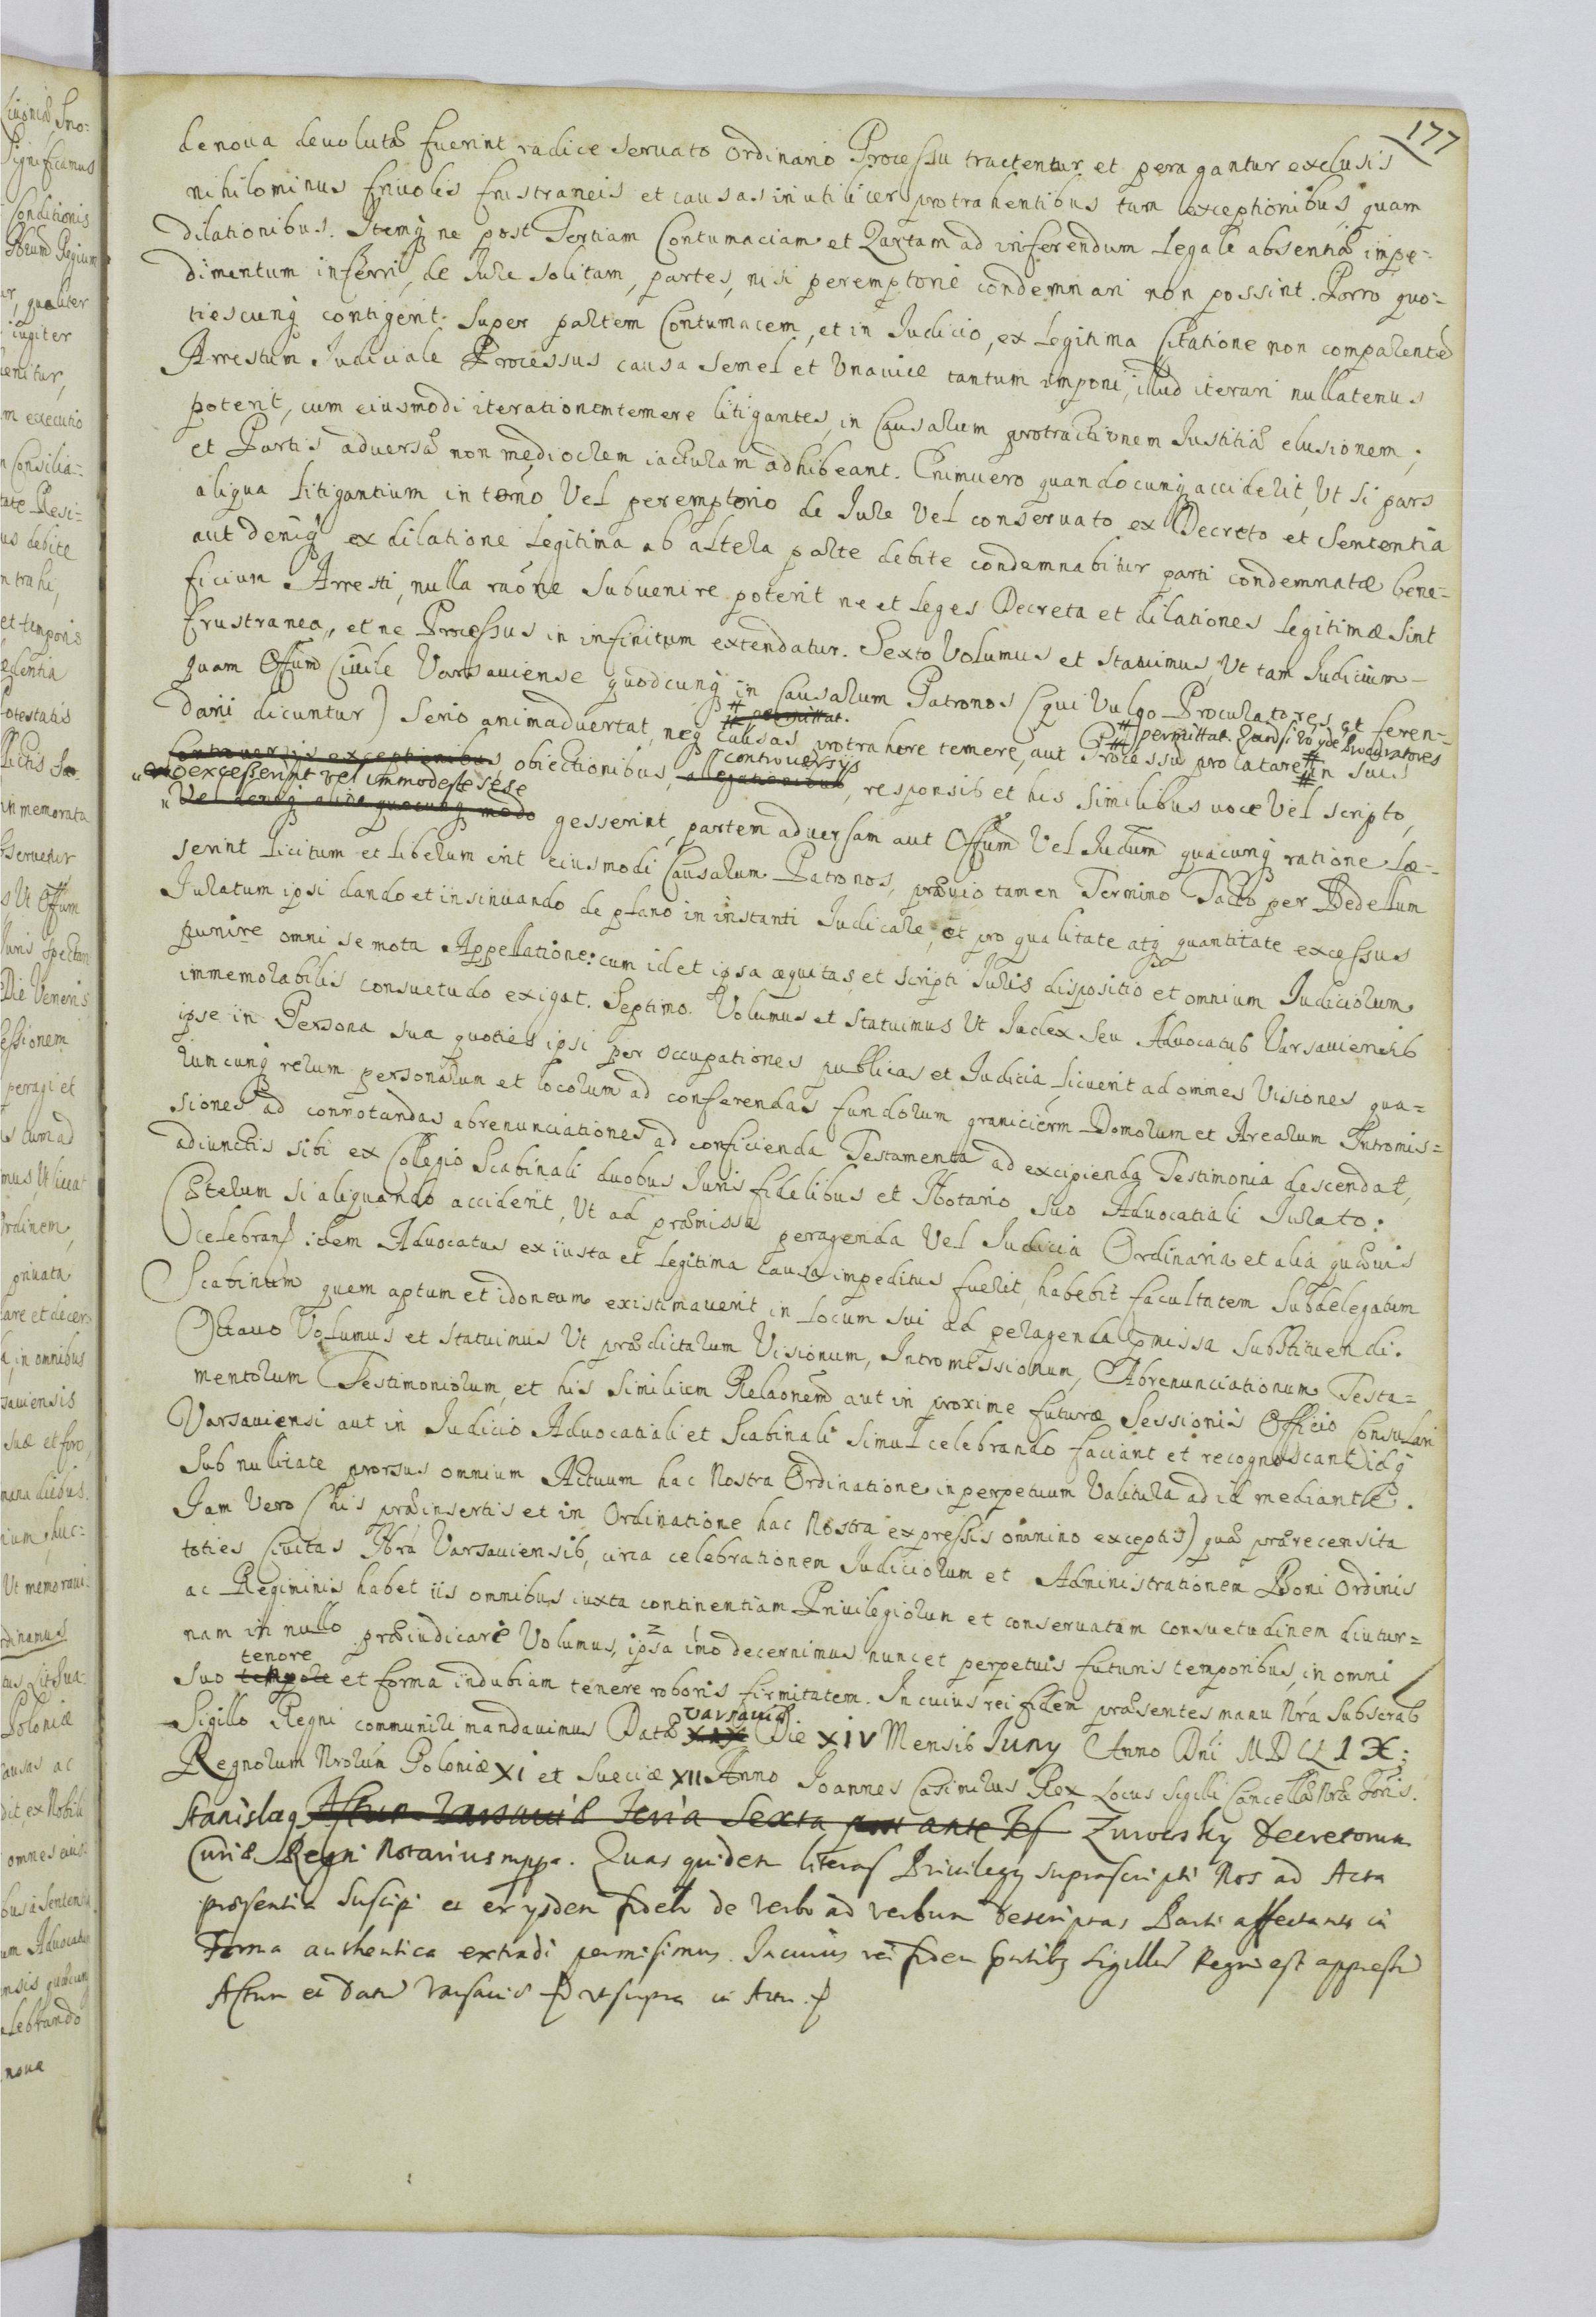 177
denoua deuolutæ fuerint radice seruato Ordinario Processu tractentur et peragantur exclusis
nihilominus friuolis frustraneis et causas inutiliter protrahentibus tam exceptionibus quam
dilationibus. Itemq ne post Tertiam Contumaciam et Quartam ad inferendum legale absentiæ impe-
dimentum inferri, de Iure solitam, partes, nisi peremptorie condemnari non possint. Porro quo-
tiescunq contigerit super partem Contumacem, et in Iudicio, ex legitima Citatione non comparentē
Arrestum Iudiciale Processus causa semel et Vnauice tantum imponi, illud iterari nullatenus
poterit, cum eiusmodi iterationem temere litigantes, in Causarum protractionem Iustitiæ elusionem,
et Partis aduersæ non mediocrem iacturam adhibeant. Enimuero quandocunq acciderit, Vt si pars
aliqua litigantium in termo Vel peremptorio de Iure Vel conseruato ex Decreto et Sententia
aut deniq ex dilatione legitima ab altera parte debite condemnabitur parti condemnatæ bene-
ficium Arresti, nulla raóne subuenire poterit ne et leges Decreta et dilationes legitimæ sint
frustranea, et ne Processus in infinitum extendatur. Sexto Volumus et Statuimus, Vt tam Iudicium
quam Offum Ciuile Varsauiense quodcunq in Causarum Patronos (qui Vulgo Procuratores et feren-
darii dicuntur) serio animaduertat, neq causas protrahere temere, aut Processu prolatare
# permittat.
# permittat. Quodsi ÿdē Procuratores # in suis
controuersis exceptionibus obiectionibus, allegationibus, responsis et his similibus voce Vel scripto,
controuersys
excesserint vel immodeste sese
Vel deniq alio quocunq modo gesserint, partem aduersam aut Offum Vel Iudum quacunq ratione læ-
serint licitum et liberum erit eiusmodi Causarum Patronos, præuio tamen Termino Tacto per Bedellum
Iuratum ipsi dando et insinuando de plano in instanti Iudicare, et pro qualitate atq quantitate excessus
punire omni semota Appellatione: cum id et ipsa æquitas et scripti Iuris dispositio et omnium Iudiciorum
immemorabilis consuetudo exigat. Septimo. Volumus et Statuimus Vt Iudex seu Aduocatus Varsauiensis
ipse in Persona sua quoties ipsi per occupationes publicas et Iudicia licuerit ad omnes Visiones qua-
rumcunq rerum personarum et locorum ad conferendas fundorum granicierm Domorum et Arearum Intromis-
siones ad connotandas abrenunciationes ad conficienda Testamenta ad excipienda Testimonia descendat,
adiunctis sibi ex Collegio Scabinali duobus Iuris fidelibus et Notario suo Aduocatiali Iurato:
Cæterum si aliquando acciderit, Vt ad præmissa peragenda Vel Iudicia Ordinaria et alia quæuis
celebran idem Aduocatus ex iusta et legitima causa impeditus fuerit, habebit facultatem Subdelegatum
Scabinum quem aptum et idoneum existimauerit in locum sui ad peragenda pmissa substituendi.
Octauo Volumus et Statuimus Vt prædictarum Visionum, Intromissionum, Abrenunciationum Testa-
mentorum Testimoniorum, et his similium Relaonem aut in proxime futuræ Sessionis Officio Consulari
Varsauiensi aut in Iudicio Aduocatiali et Scabinali simul celebrando faciant et recognoscant idq
sub nulitate prorsus omnium Actuum hac Nostra Ordinatione in perpetuum Valitura ad id mediante.
Iam Vero (his præinsertis et in Ordinatione hac Nostra expressis omnino exceptis) quæ prærecensita
toties Ciuitas Nrā Varsauiensis, circa celebrationem Iudiciorum et Administrationem Boni Ordinis
ac Regiminis habet iis omnibus iuxta continentiam Priuilegiorum et conseruatam consuetudinem diutur-
nam in nullo præiudicare Volumus, ipsa imo decernimus nunc et perpetuis futuris temporibus, in omni
tenore
suo tempore et forma indubiam tenere roboris firmitatem. In cuius rei fidem præsentes manu Nrā Subscrās
Sigillo Regni communiri mandauimus Datæ Varsauiæ XIX Die XIV Mensis Iuny Anno Dni MDCLIX:
Regnorum Nrorum Poloniæ XI et Sueciæ XII Anno Joannes Casimirus Rex Locus Sigilli Cancellæ Nræ Toris.
Stanislaq Actum Varsauiæ Feria Sexta post ante Fes Zurowsky Decretorum
Curiæ Regni Notarius mppa. Quas quidem literas Priuilegy suprascripti Nos ad Acta
præsentia suscipi et ex ysdem fideli de verbo ad verbum descriptas Parti affectanti in
Forma authentica extradi permisimus. In cuius rei fidem pntibq Sigillū Regni est appressū
Actum et Datū Varsauiæ ut supra in Actu.